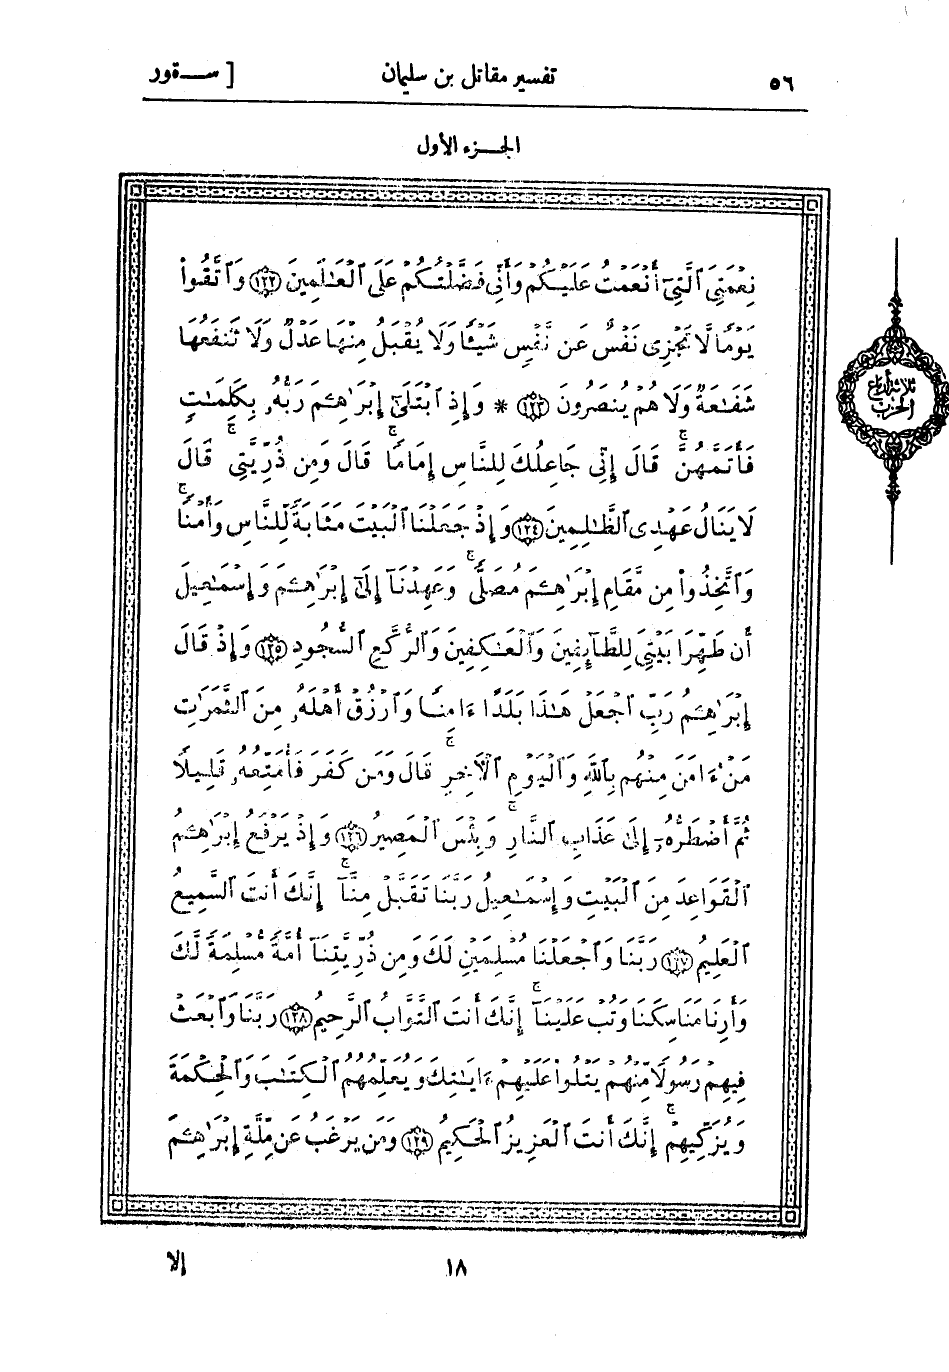 ٥٦ تفسير مقاتل بن سليمان [ ســـورة
الجـــزء الأول
نِعْمَتِيَ ٱلَّتِيٓ أَنْعَمْتُ عَلَيْكُمْ وَأَنِّي فَضَّلْتُكُمْ عَلَى ٱلْعَٰلَمِينَ ۝١٢٢ وَٱتَّقُوا۟
يَوْمًا لَّا تَجْزِى نَفْسٌ عَن نَّفْسٍ شَيْـًٔا وَلَا يُقْبَلُ مِنْهَا عَدْلٌ وَلَا تَنفَعُهَا
شَفَٰعَةٌ وَلَا هُمْ يُنصَرُونَ ۝١٢٣ * وَإِذِ ٱبْتَلَىٰٓ إِبْرَٰهِـۧمَ رَبُّهُۥ بِكَلِمَٰتٍ
فَأَتَمَّهُنَّ ۖ قَالَ إِنِّى جَاعِلُكَ لِلنَّاسِ إِمَامًا ۖ قَالَ وَمِن ذُرِّيَّتِى ۖ قَالَ
لَا يَنَالُ عَهْدِى ٱلظَّٰلِمِينَ ۝١٢٤ وَإِذْ جَعَلْنَا ٱلْبَيْتَ مَثَابَةً لِّلنَّاسِ وَأَمْنًا
وَٱتَّخِذُوا۟ مِن مَّقَامِ إِبْرَٰهِـۧمَ مُصَلًّى ۖ وَعَهِدْنَآ إِلَىٰٓ إِبْرَٰهِـۧمَ وَإِسْمَٰعِيلَ
أَن طَهِّرَا بَيْتِىَ لِلطَّآئِفِينَ وَٱلْعَٰكِفِينَ وَٱلرُّكَّعِ ٱلسُّجُودِ ۝١٢٥ وَإِذْ قَالَ
إِبْرَٰهِـۧمُ رَبِّ ٱجْعَلْ هَٰذَا بَلَدًا ءَامِنًا وَٱرْزُقْ أَهْلَهُۥ مِنَ ٱلثَّمَرَٰتِ
مَنْ ءَامَنَ مِنْهُم بِٱللَّهِ وَٱلْيَوْمِ ٱلْءَاخِرِ ۖ قَالَ وَمَن كَفَرَ فَأُمَتِّعُهُۥ قَلِيلًا
ثُمَّ أَضْطَرُّهُۥٓ إِلَىٰ عَذَابِ ٱلنَّارِ ۖ وَبِئْسَ ٱلْمَصِيرُ ۝١٢٦ وَإِذْ يَرْفَعُ إِبْرَٰهِـۧمُ
ٱلْقَوَاعِدَ مِنَ ٱلْبَيْتِ وَإِسْمَٰعِيلُ رَبَّنَا تَقَبَّلْ مِنَّآ ۖ إِنَّكَ أَنتَ ٱلسَّمِيعُ
ٱلْعَلِيمُ ۝١٢٧ رَبَّنَا وَٱجْعَلْنَا مُسْلِمَيْنِ لَكَ وَمِن ذُرِّيَّتِنَآ أُمَّةً مُّسْلِمَةً لَّكَ
وَأَرِنَا مَنَاسِكَنَا وَتُبْ عَلَيْنَآ ۖ إِنَّكَ أَنتَ ٱلتَّوَّابُ ٱلرَّحِيمُ ۝١٢٨ رَبَّنَا وَٱبْعَثْ
فِيهِمْ رَسُولًا مِّنْهُمْ يَتْلُوا۟ عَلَيْهِمْ ءَايَٰتِكَ وَيُعَلِّمُهُمُ ٱلْكِتَٰبَ وَٱلْحِكْمَةَ
وَيُزَكِّيهِمْ ۚ إِنَّكَ أَنتَ ٱلْعَزِيزُ ٱلْحَكِيمُ ۝١٢٩ وَمَن يَرْغَبُ عَن مِّلَّةِ إِبْرَٰهِـۧمَ
ثلاثة أرباع
الحزب
١٨ إلا